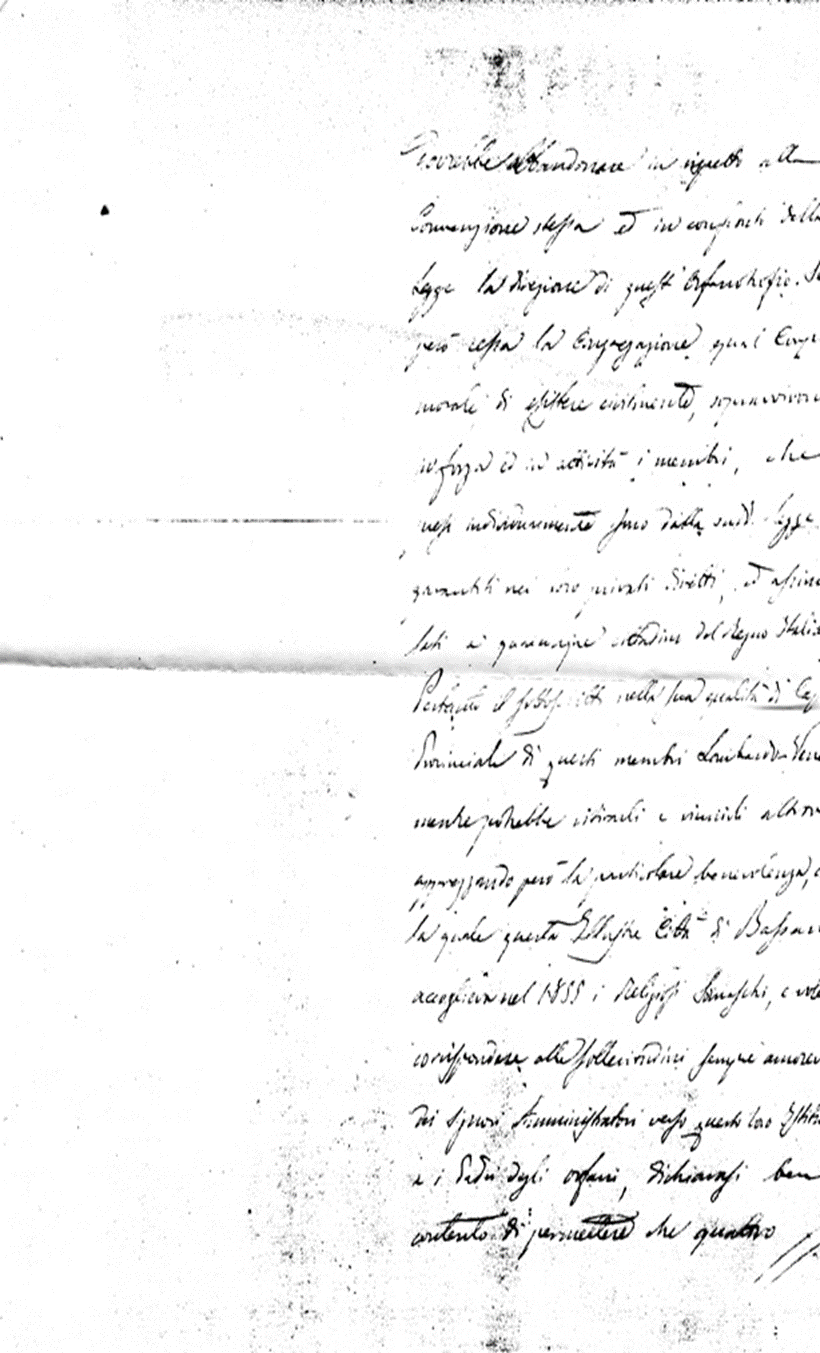 dovrebbe abbandonare in rispetto alla
Convenzione stessa ed in confronti della
Legge la direzione di quest'Orfanotrofio. Se
però cessa la Congregazione qual Corpo
morale di esistere civilmente, sopravvivono
in forza ed in attività i membri, che
presi individualmente sono dalla sudd. Legge
garantiti nei loro privati diritti, ed assimi-
lati ai qualunque cittadini del Regno Italia
Pertanto il sottoscritto nella sua qualità di Cap
Provinciale di questi membri Lombardo-Vene
mentre potrebbe altrov
apprezzando però la particolare benevolenza, c
la quale questa Illustre Città di Bassan
accoglieva nel 1855 i Religiosi Somaschi, e vole
corrispondere alle sollecitudini sempre amorev
dei Signori Amministratori verso questo loro Istitu
e i Padri degli orfani, dichiarasi ben
contento di permettere che quattro